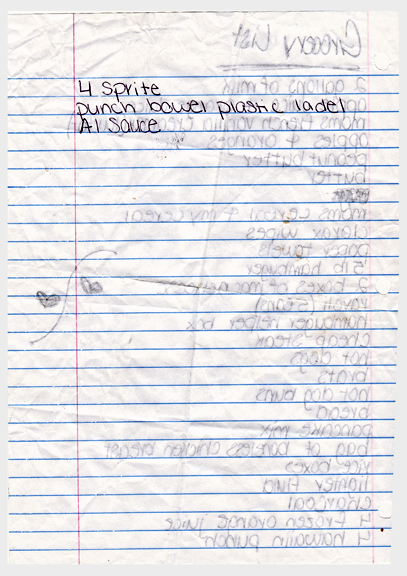 Grocery List
2 gallons of milk
4 Sprite
punch bowel plastic ladel
moms french vanilla
A1 Sauce
apples + oranges
peanut butter
butter
moms cereal + my cereal
clorax wipes
paper towels
5 lb hamburger
2 boxes of
(5 cans)
hamburger helper box
cheap steak
hot dogs
brats
hot dog buns
bread
pancake mix
bag of boneless chicken breast
rice boxes
lighter fluid
charcoal
4 frozen orange juice
4 hawaiin punch